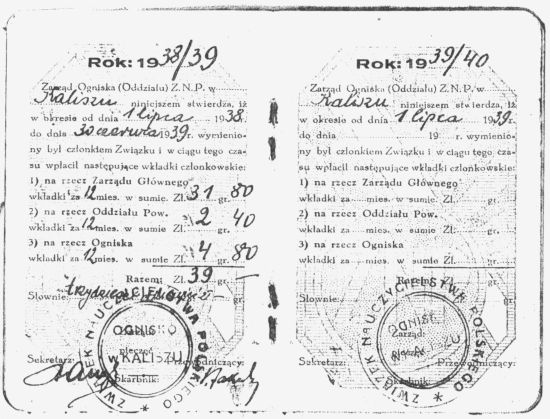 Rok: 1938/39
Zarząd Ogniska (Oddziału) Z.N.P. w
Kaliszu niniejszem stwierdza, iż
w okresie od dnia 1 lipca 1938.
do dnia 30 czerwca 1939. wymienio-
ny był członkiem Związku i w ciągu tego cza-
su wpłacił następujące wkładki członkowskie:
1) na rzecz Zarządu Głównego
wkładki za 12 mies. w sumie Zł. 31 gr. 80
2) na rzecz Oddziału Pow.
wkładki za 12 mies. w sumie Zł. 2 gr. 40
3) na rzecz Ogniska
wkładki za 12 mies. w sumie Zł. 4 gr. 80
Razem: Zł. 39 gr.
Słownie: gr.
ZWIĄZEK NAUCZYCIELSTWA POLSKIEGO
OGNISKO
pieczęć
W KALISZU
Sekretarz: Przewodniczący:
Skarbnik:
Rok: 1939/40
Zarząd Ogniska (Oddziału) Z.N.P. w
Kaliszu niniejszem stwierdza, iż
w okresie od dnia 1 lipca 1939 r.
do dnia 19 r. wymienio-
ny był członkiem Związku i w ciągu tego cza-
su wpłacił następujące wkładki członkowskie:
1) na rzecz Zarządu Głównego
wkładki za mies. w sumie Zł. gr.
2) na rzecz Oddziału Pow.
wkładki za mies. w sumie Zł. gr.
3) na rzecz Ogniska
wkładki za mies. w sumie Zł. gr.
Razem: Zł. gr.
Słownie: gr.
ZWIĄZEK NAUCZYCIELSTWA POLSKIEGO
OGNISKO
Zarząd
pieczęć
Sekretarz: Przewodniczący:
Skarbnik: